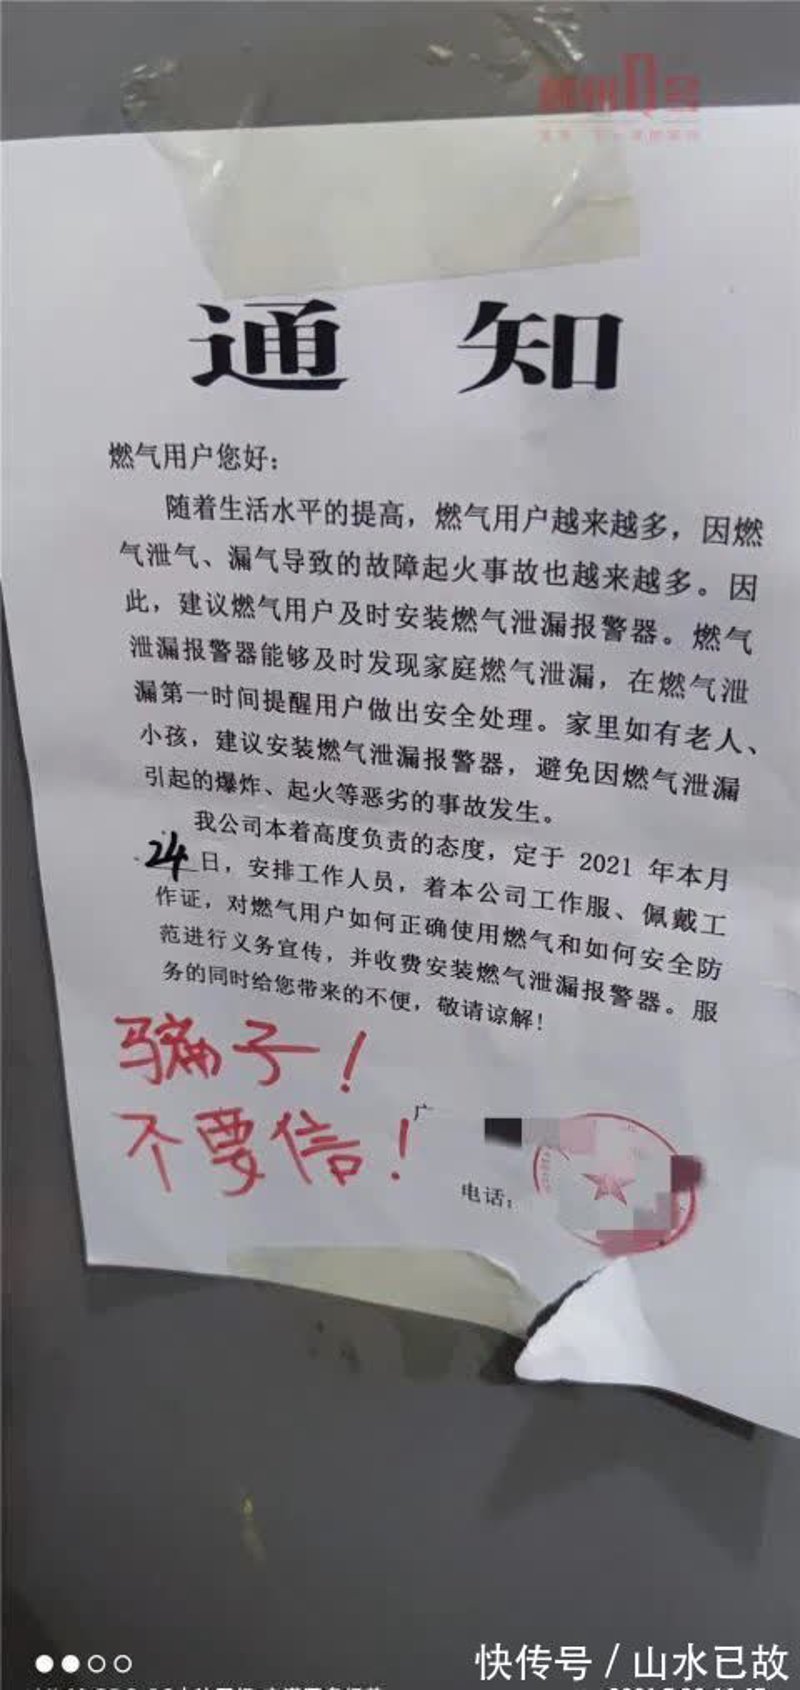 通知
燃气用户您好：
随着生活水平的提高，燃气用户越来越多，因燃
气泄气、漏气导致的故障起火事故也越来越多。因
此，建议燃气用户及时安装燃气泄漏报警器。燃气
泄漏报警器能够及时发现家庭燃气泄漏，在燃气泄
漏第一时间提醒用户做出安全处理。家里如有老人、
小孩，建议安装燃气泄漏报警器，避免因燃气泄漏
引起的爆炸、起火等恶劣的事故发生。
我公司本着高度负责的态度，定于 2021 年本月
24日，安排工作人员，着本公司工作服、佩戴工
作证，对燃气用户如何正确使用燃气和如何安全防
范进行义务宣传，并收费安装燃气泄漏报警器。服
务的同时给您带来的不便，敬请谅解！
骗子！
不要信！
广
电话：
快传号 / 山水已故